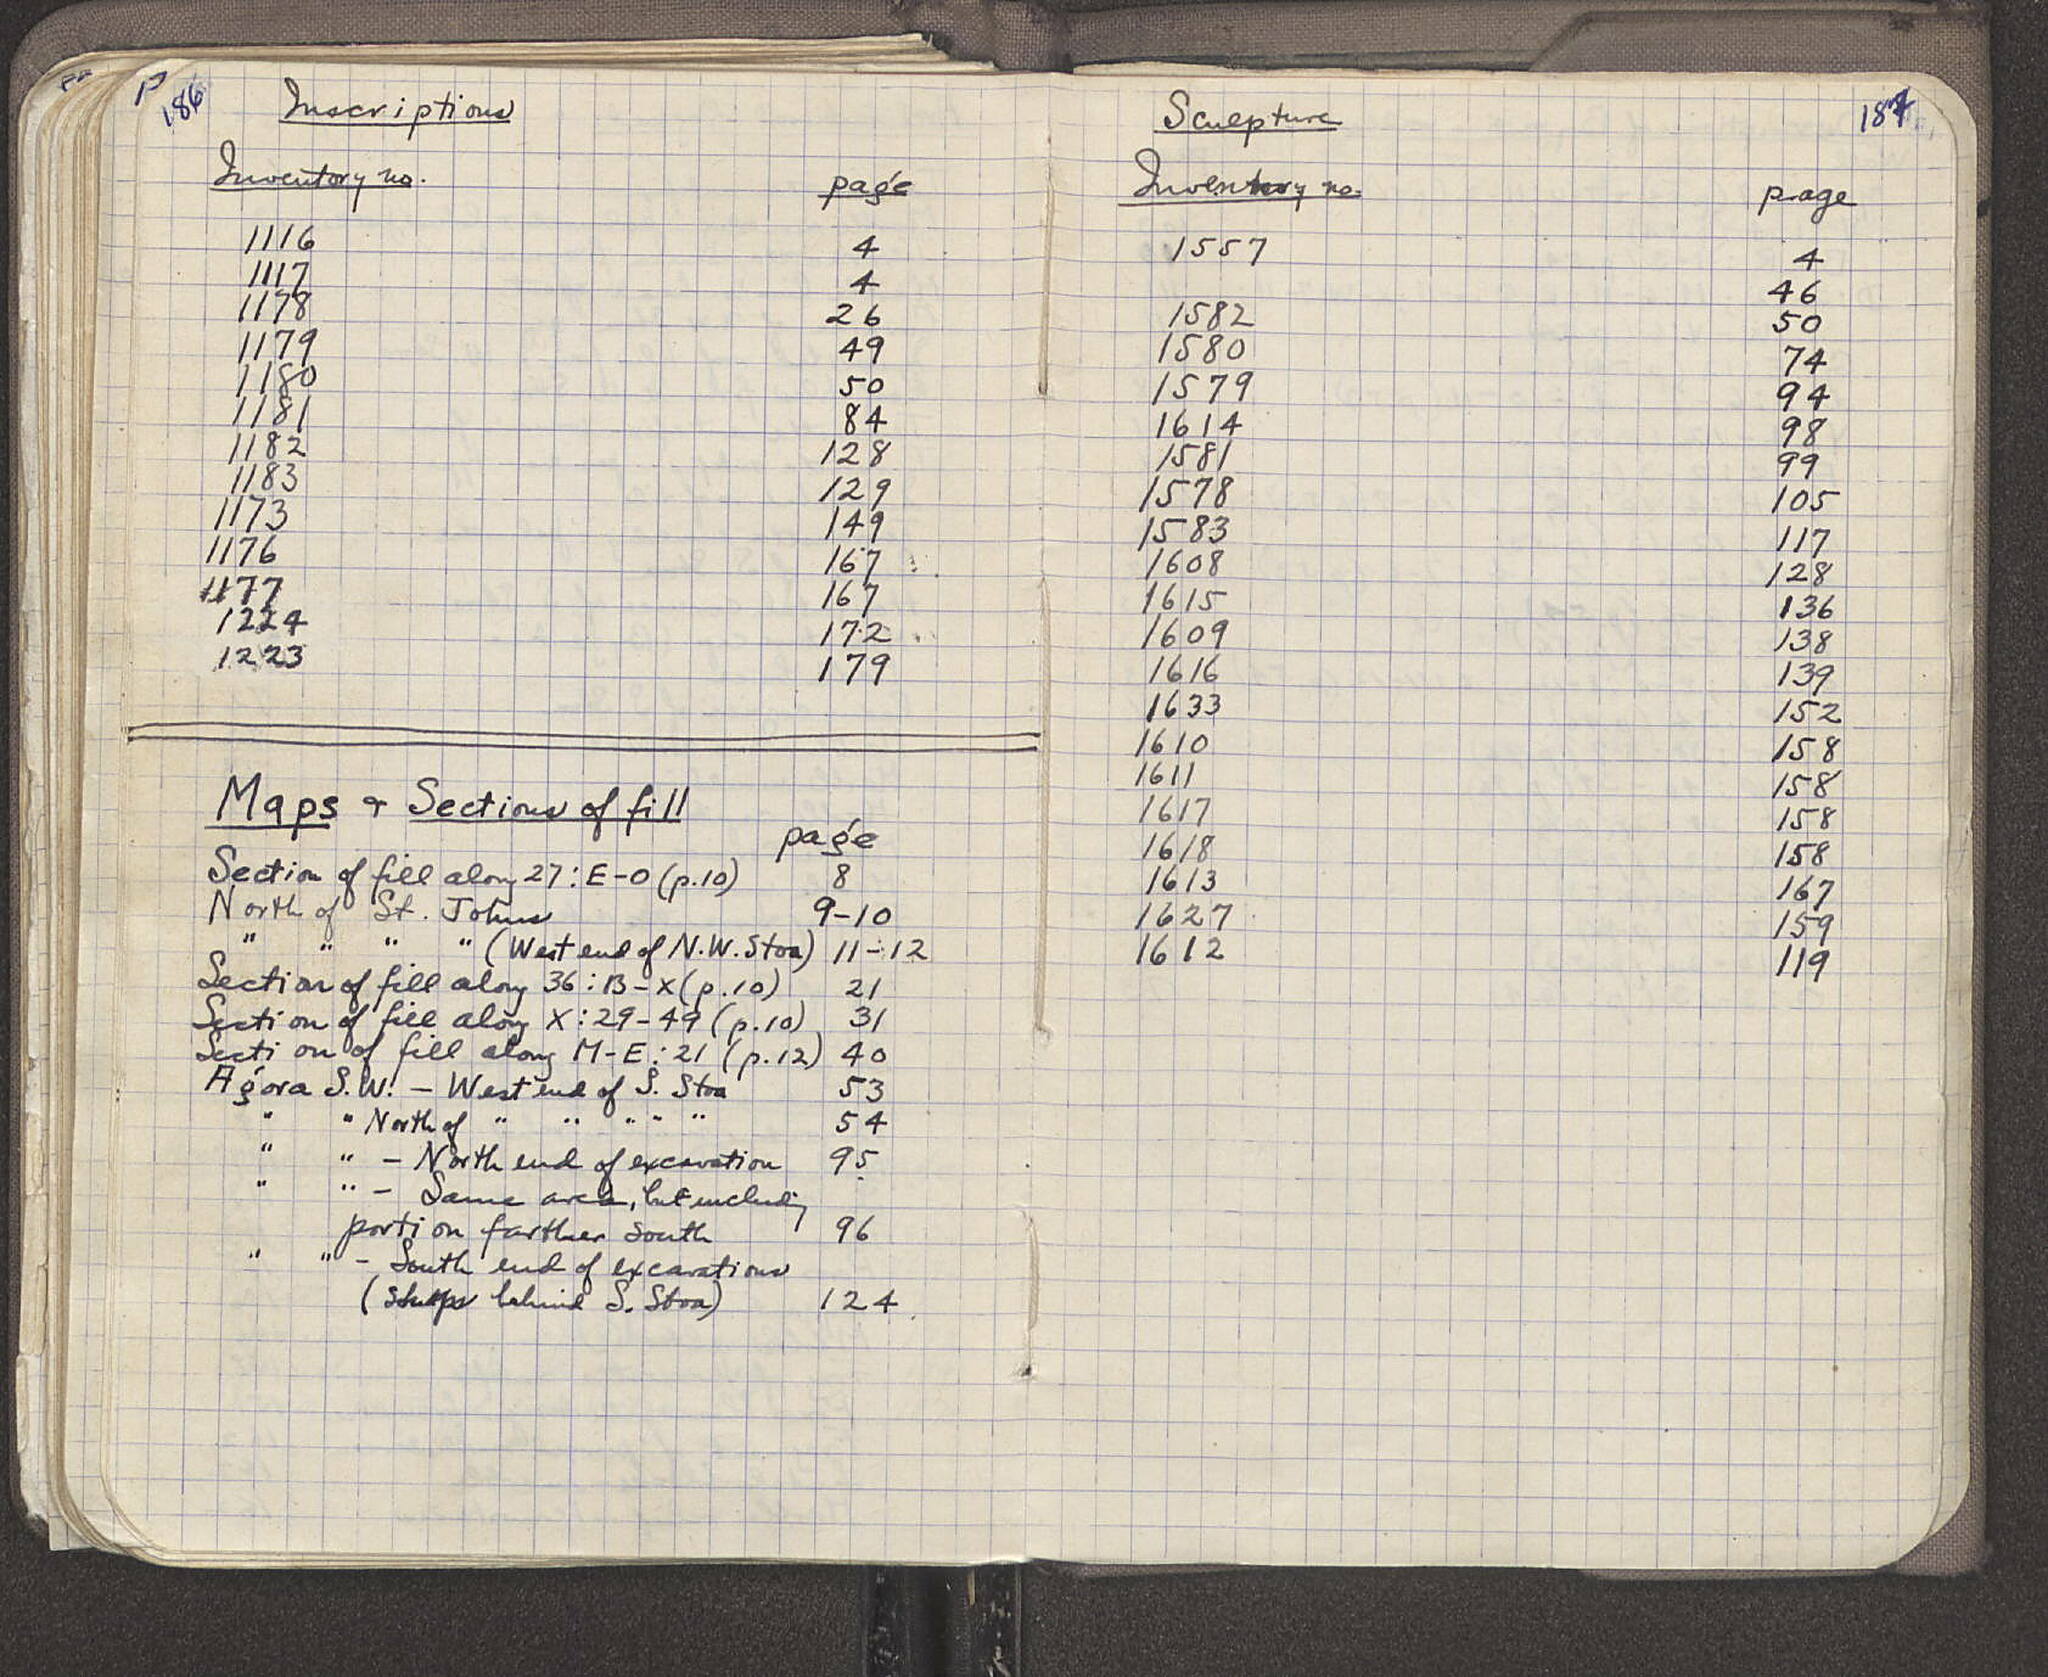 186
Inscriptions
Inventory no. page
1116 4
1117 4
1178 26
1179 49
1180 50
1181 84
1182 128
1183 129
1173 149
1176 167
1177 167
1224 172
1223 179
Maps + Sections of fill
page
Section of fill along 27: E-O (p.10) 8
North of St. Johns 9-10
" " " " (West end of N.W. Stoa) 11-12
Section of fill along 36: B-X (p.10) 21
Section of fill along X: 29-49 (p.10) 31
Section of fill along M-E: 21 (p.12) 40
Agora S.W. - West end of S. Stoa 53
" " North of " " " " " 54
" " - North end of excavation 95
" " - Same area, but including
portion farther south 96
" " - South end of excavations
(Shops behind S. Stoa) 124
187
Sculpture
Inventory no. page
1557 4
46
1582 50
1580 74
1579 94
1614 98
1581 99
1578 105
1583 117
1608 128
1615 136
1609 138
1616 139
1633 152
1610 158
1611 158
1617 158
1618 158
1613 167
1627 159
1612 119